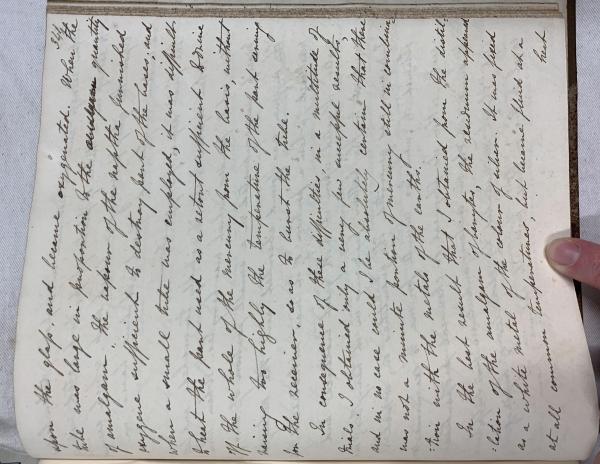 upon the glass, and became oxygenated. When the
tube was large in proportion to the quantity
of amalgam the vapour of the naptha furnished
oxygene sufficient to destroy part of the bases, and
when a small tube was employed, it was difficult
to heat the part used as a retort sufficient to drive
off the whole of the mercury from the basis, without
raising too highly the temperature of the part serving
for the receiver, so as to burst the tube.
In consequence of these difficulties, in a multitude of
trials I obtained only a very few successful results,
and in no case could I be absolutely certain that there
was not a minute portion of mercury still in combina
-tion with the metals of the earths.
In the best result that I obtained from the distil
-lation of the amalgam of barytes, the residuum appeared
as a white metal of the colour of silver. It was fixed
at all common temperatures, but became fluid at a
heat